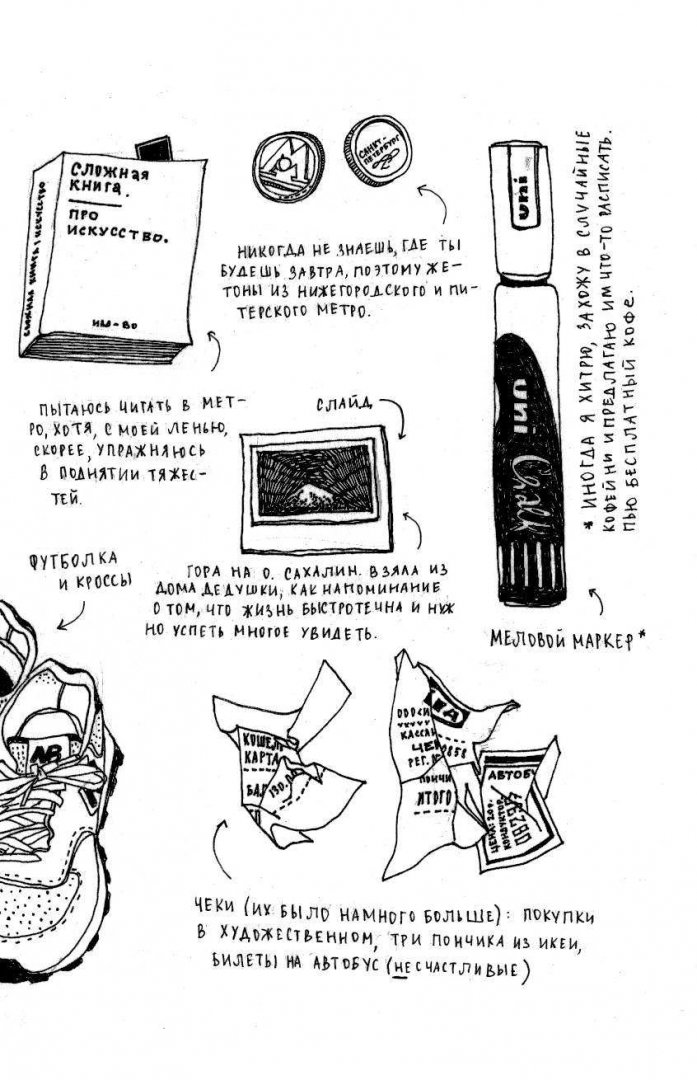 СЛОЖНАЯ
КНИГА.
ПРО
ИСКУССТВО.
ИМ-ВО
М
САНКТ-
ПЕТЕРБУРГ
НИКОГДА НЕ ЗНАЕШЬ, ГДЕ ТЫ
БУДЕШЬ ЗАВТРА, ПОЭТОМУ ЖЕ-
ТОНЫ ИЗ НИЖЕГОРОДСКОГО И ПИ-
ТЕРСКОГО МЕТРО.
uni
uni
Chalk
* ИНОГДА Я ХИТРЮ, ЗАХОЖУ В СЛУЧАЙНЫЕ
КОФЕЙНИ И ПРЕДЛАГАЮ ИМ ЧТО-ТО РАСПИСАТЬ.
ПЬЮ БЕСПЛАТНЫЙ КОФЕ.
ПЫТАЮСЬ ЧИТАТЬ В МЕТ-
РО, ХОТЯ, С МОЕЙ ЛЕНЬЮ,
СКОРЕЕ, УПРАЖНЯЮСЬ
В ПОДНЯТИИ ТЯЖЕС-
ТЕЙ.
СЛАЙД
ФУТБОЛКА
И КРОССЫ
ГОРА НА О. САХАЛИН. ВЗЯЛА ИЗ
ДОМА ДЕДУШКИ, КАК НАПОМИНАНИЕ
О ТОМ, ЧТО ЖИЗНЬ БЫСТРОТЕЧНА И НУЖ
НО УСПЕТЬ МНОГОЕ УВИДЕТЬ.
МЕЛОВОЙ МАРКЕР*
NB
КОШЕЛ
КАРТА
БАЛ
КАССА
ЧЕК
РЕГ. К
ПОНЧИ
ИТОГО
АВТОБ
ЦЕНА: 20р.
КОНДУКТОР
ЧЕКИ (ИХ БЫЛО НАМНОГО БОЛЬШЕ): ПОКУПКИ
В ХУДОЖЕСТВЕННОМ, ТРИ ПОНЧИКА ИЗ ИКЕИ,
БИЛЕТЫ НА АВТОБУС (НЕСЧАСТЛИВЫЕ)